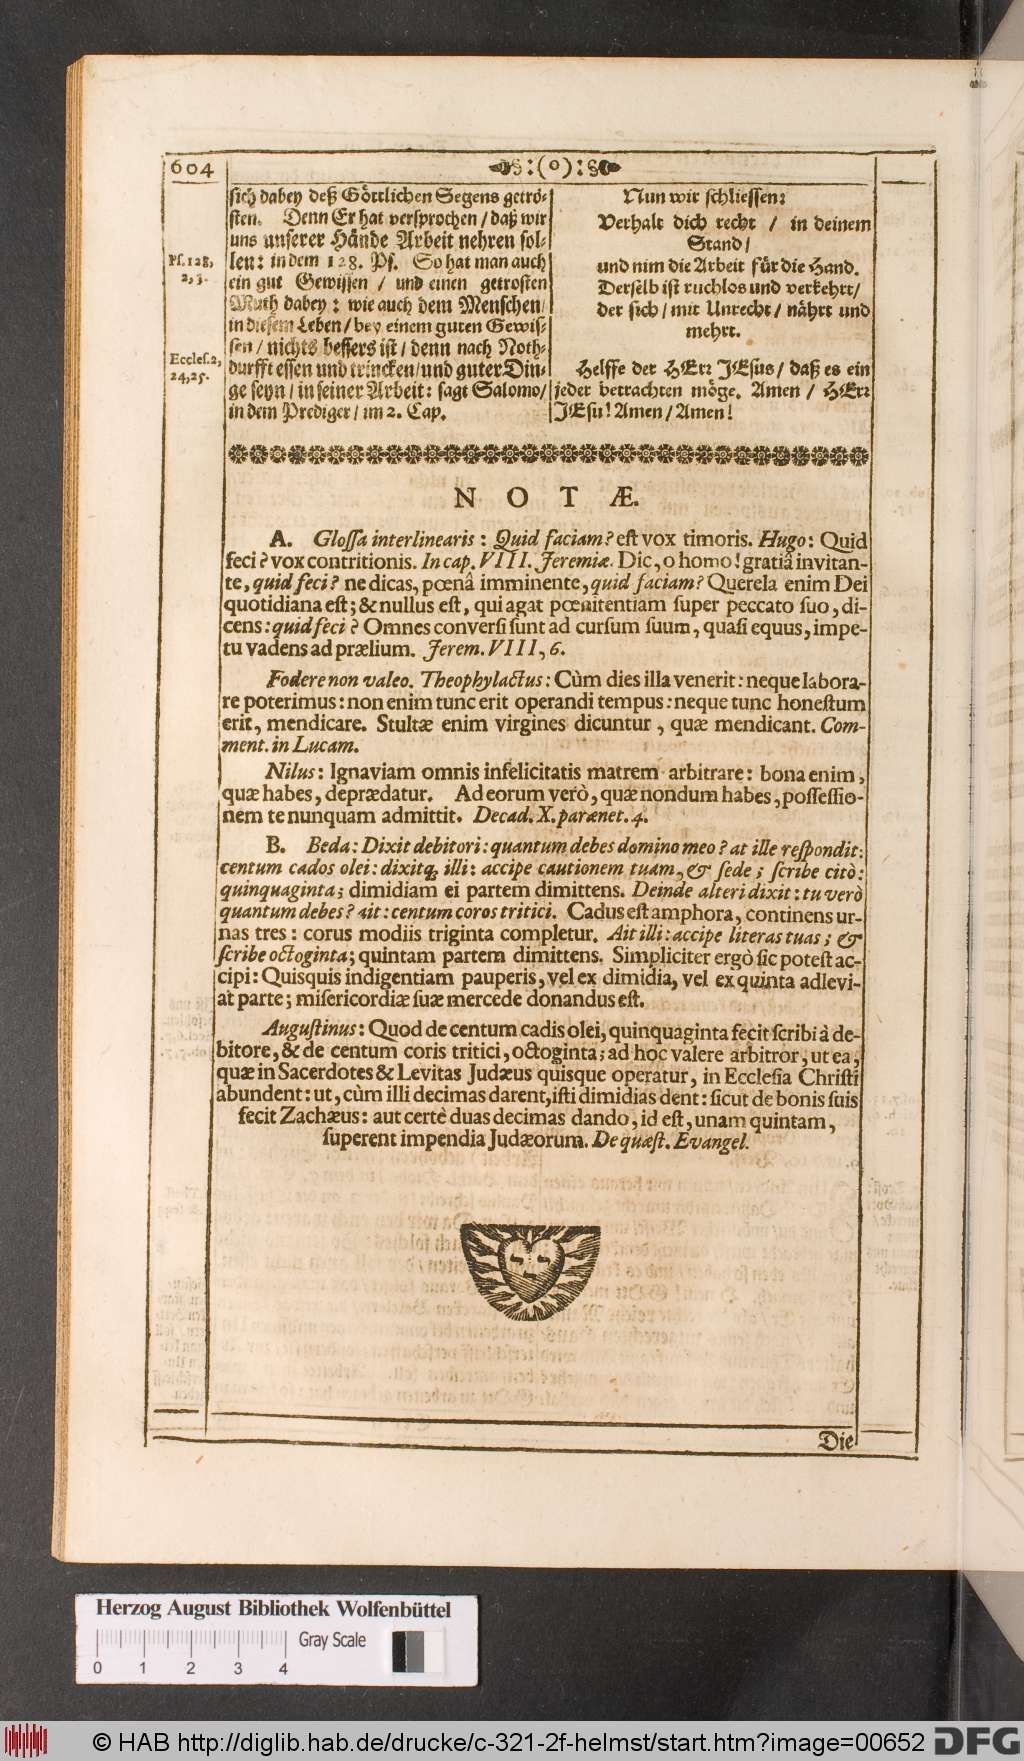 604
§:(o):§
sich dabey deß Göttlichen Segens getrö-
sten. Denn Er hat versprochen / daß wir
uns unserer Hände Arbeit nehren sol-
len: in dem 128. Ps. So hat man auch
ein gut Gewissen / und einen getrosten
Muth dabey: wie auch dem Menschen
in diesem Leben / bey einem guten Gewis-
sen / nichts bessers ist / denn nach Noth-
durfft essen und trincken / und guter Din-
ge seyn / in seiner Arbeit: sagt Salomo /
in dem Prediger / im 2. Cap.
Ps. 128,
2, 3.
Eccles. 2,
24, 25.
Nun wir schliessen:
Verhalt dich recht / in deinem
Stand /
und nim die Arbeit für die Hand.
Derselb ist ruchlos und verkehrt /
der sich / mit Unrecht / nährt und
mehrt.
Helffe der HErr JEsus / daß es ein
jeder betrachten möge. Amen / HErr
JEsu! Amen / Amen!
NOTÆ.
A. Glossa interlinearis: Quid faciam? est vox timoris. Hugo: Quid
feci? vox contritionis. In cap. VIII. Jeremiæ. Dic, o homo! gratiâ invitan-
te, quid feci? ne dicas, pœnâ imminente, quid faciam? Querela enim Dei
quotidiana est; & nullus est, qui agat pœnitentiam super peccato suo, di-
cens: quid feci? Omnes conversi sunt ad cursum suum, quasi equus, impe-
tu vadens ad prælium. Jerem. VIII, 6.
Fodere non valeo. Theophylactus: Cùm dies illa venerit: neque labora-
re poterimus: non enim tunc erit operandi tempus: neque tunc honestum
erit, mendicare. Stultæ enim virgines dicuntur, quæ mendicant. Com-
ment. in Lucam.
Nilus: Ignaviam omnis infelicitatis matrem arbitrare: bona enim,
quæ habes, deprædatur. Ad eorum verò, quæ nondum habes, possessio-
nem te nunquam admittit. Decad. X. parænet. 4.
B. Beda: Dixit debitori: quantum debes domino meo? at ille respondit:
centum cados olei: dixitq; illi: accipe cautionem tuam, & sede; scribe citò:
quinquaginta; dimidiam ei partem dimittens. Deinde alteri dixit: tu verò
quantum debes? ait: centum coros tritici. Cadus est amphora, continens ur-
nas tres: corus modiis triginta completur. Ait illi: accipe literas tuas; &
scribe octoginta; quintam partem dimittens. Simpliciter ergò sic potest ac-
cipi: Quisquis indigentiam pauperis, vel ex dimidia, vel ex quinta adlevi-
at parte; misericordiæ suæ mercede donandus est.
Augustinus: Quod de centum cadis olei, quinquaginta fecit scribi â de-
bitore, & de centum coris tritici, octoginta; ad hoc valere arbitror, ut ea,
quæ in Sacerdotes & Levitas Judæus quisque operatur, in Ecclesia Christi
abundent: ut, cùm illi decimas darent, isti dimidias dent: sicut de bonis suis
fecit Zachæus: aut certè duas decimas dando, id est, unam quintam,
superent impendia Judæorum. De quæst. Evangel.
Die
Herzog August Bibliothek Wolfenbüttel
Gray Scale
0 1 2 3 4
© HAB http://diglib.hab.de/drucke/c-321-2f-helmst/start.htm?image=00652
DFG